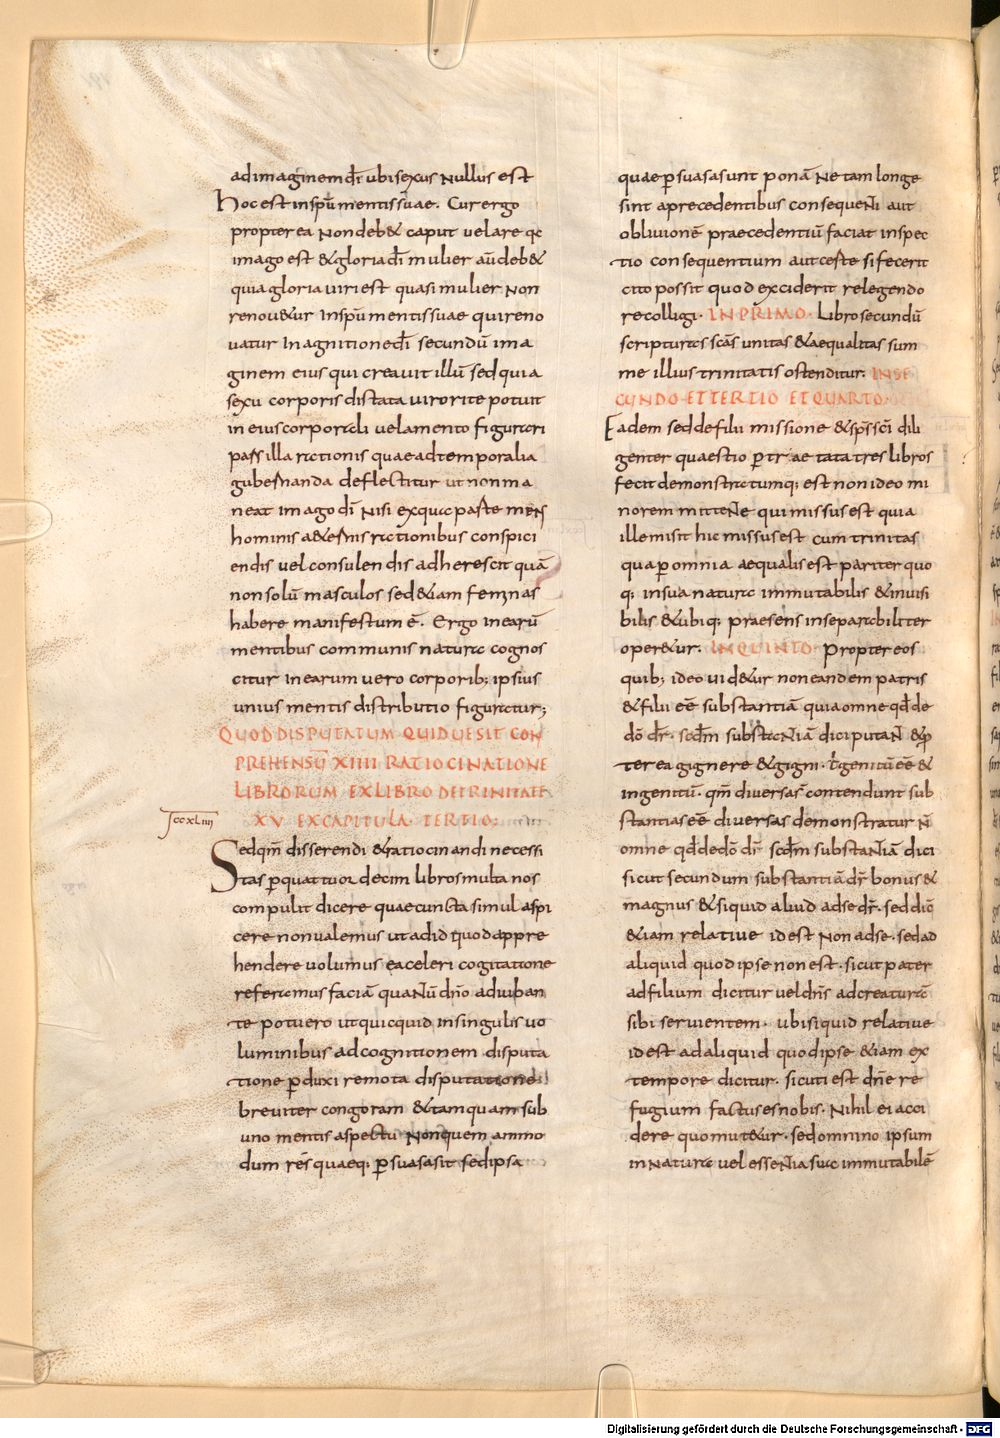 ad imaginem dī ubi sexus nullus est
hoc est in spū mentis suae. Cur ergo
propterea non deb& caput velare qđ
imago est & gloria dī mulier aū deb&
quia gloria viri est quasi mulier non
renou&ur in spū mentis suae qui reno
uatur in agnitione dī secundū ima
ginem eius qui creavit illū sed quia
sexu corporis distat a viro rite potuit
in eius corporali velamento figurari
pars illa rationis quae ad temporalia
gubernanda deflectitur ut non ma
neat imago dī nisi ex qua parte mens
hominis a&ernis rationibus conspici
endis vel consulendis adherescit quā
non solū masculos sed &iam feminas
habere manifestum ē. Ergo in earū
mentibus communis natura cognos
citur in earum vero corporib; ipsius
unius mentis distributio figuratur;
QUOD DISPUTATUM QUID UE SIT CON
PREHENSŪ XIIII RATIOCINATIONE
LIBRORUM EX LIBRO DE TRINITATE
XV EX CAPITULA TERTIO:
ccxliiii
Sed qm̄ disserendi & ratiocinandi necessi
tas p quattuor decim libros multa nos
compulit dicere quae cuncta simul aspi
cere non valemus ut ad id quod appre
hendere volumus ea celeri cogitatione
referamus faciā quantū dn̄o adiuban
te potuero ut quicquid in singulis vo
luminibus ad cognitionem disputa
tione pduxi remota disputatione
breviter congoram & tamquam sub
uno mentis aspectu non quem ammo
dum res quaeq; psuasa sit sed ipsa
quae psuasa sunt ponā ne tam longe
sint a precedentibus consequenti aut
oblivionē praecedentiū faciat inspec
tio consequentium aut certe si fecerit
cito possit quod exciderit relegendo
recolligi. IN PRIMO. Libro secundū
scripturas scās unitas & aequalitas sum
me illius trinitatis ostenditur. IN SE
CUNDO ET TERTIO ET QUARTO.
Eadem sed de filii missione & sp̄s sc̄i dili
genter quaestio p tractata tres libros
fecit demonstratumq; est non ideo mi
norem mittente qui missus est quia
ille misit hic missus est cum trinitas
qua p omnia aequalis est pariter quo
q; in sua natura immutabilis & invisi
bilis & ubiq; praesens inseparabiliter
oper&ur. IN QUINTO. Propter eos
quib; ideo vid&ur non eandem patris
& filii eē substantiā quia omne qđ de
dō dr̄. scđm substantiā dici putant & p
terea gignere & gigni. l̄ genitū eē &
ingenitū. qm̄ diversas contendunt sub
stantias eē diversas demonstratur n̄
omne qđ de dō dr̄ scđm substantiā dici
sicut secundum substantiā dr̄ bonus &
magnus & si quid aliud ad se dr̄. sed dici
&iam relative id est non ad se. sed ad
aliquid quod ipse non est. sicut pater
ad filium dicitur vel dn̄s ad creaturā
sibi servientem. ubi si quid relative
id est ad aliquid quod ipse &iam ex
tempore dicitur. sicuti est dn̄e re
fugium factus es nobis. Nihil ei acci
dere quo mut&ur. sed omnino ipsum
in natura vel essentia sua immutabilē
Digitalisierung gefördert durch die Deutsche Forschungsgemeinschaft - DFG